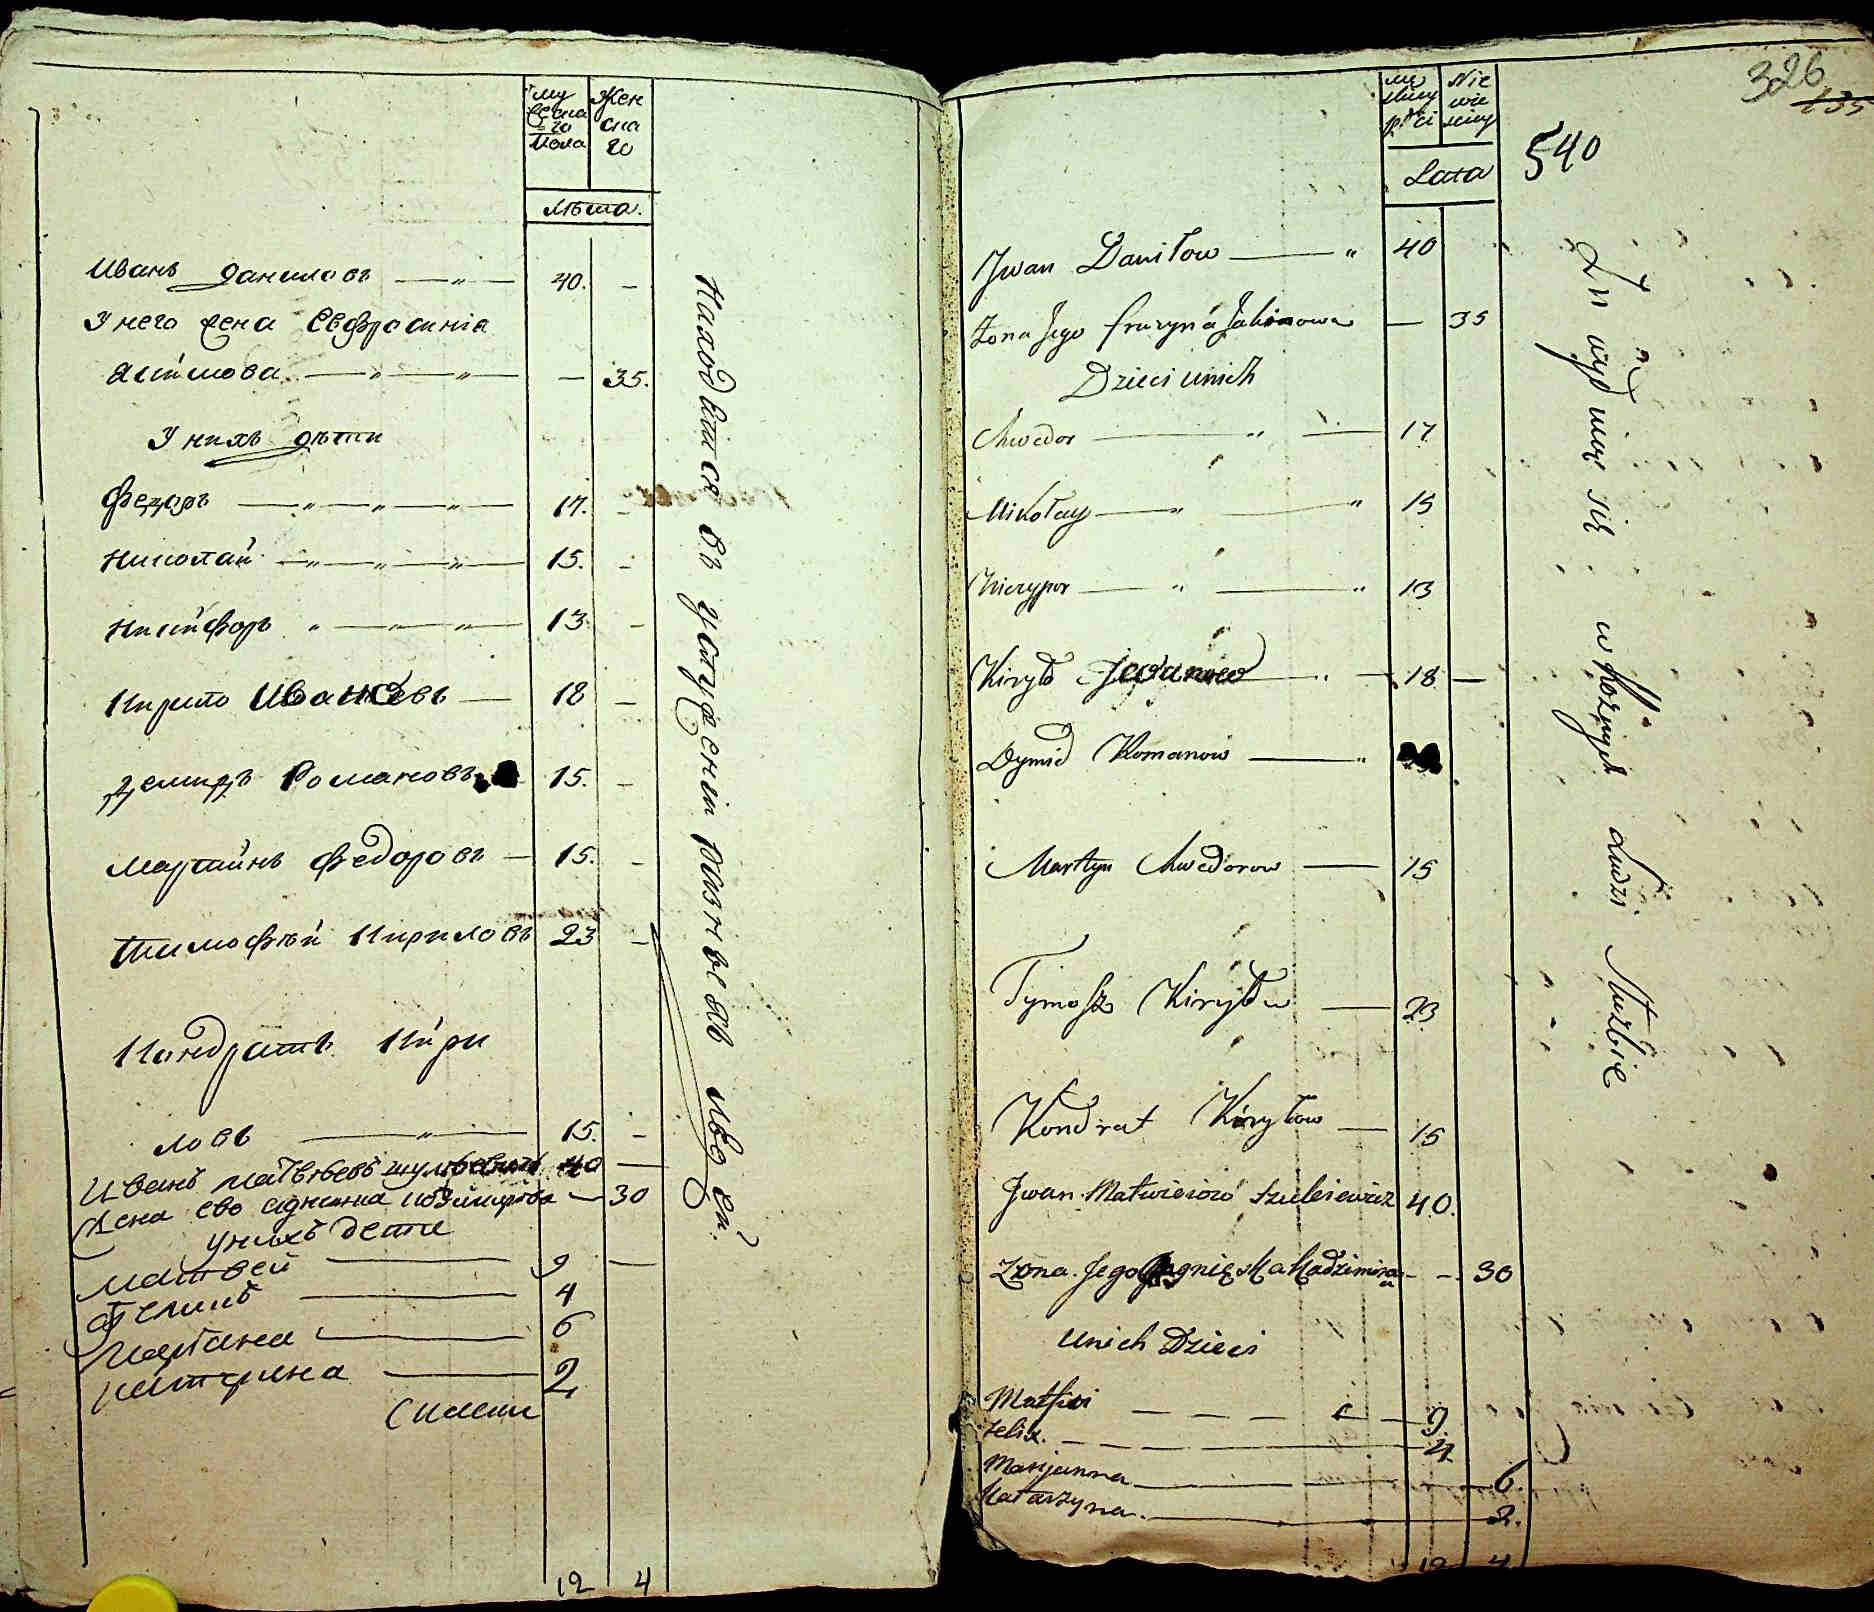 му
жеска
го
пола
Жен
ска
го
лѣта.
Иванъ Даниловъ 40.
У него жена Евфросиніа
Якимова 35.
У нихъ дѣти
Федоръ 17.
Николай 15.
Никифоръ 13.
Кирило Ивановъ 18
Демидъ Романовъ 15.
Мартинъ Федоровъ 15.
Тимофѣй Кириловъ 23
Кондратъ Кири
ловъ 15.
Иванъ Матвѣевъ 40
Жена ево 30
унихъ дети
Матвей 9
4
6
2
12 4
Находятся въ услуженіи разныхъ людей
326
135
540
Lata
Jwan Daniłow 40
Żona Jego Fruzyna Jakimowa 35
Dzieci unich
Chwedor 17
Mikołay 15
Niczypor 13
Kiryło Jwanow 18
Dymid Romanow
Martyn Chwedorow 15
Tymosz Kiryłow 23
Kondrat Kiryłow 15
Jwan Matwieiow Szuleiewicz 40.
Zona Jego Agnieszka Kadzimira 30
unich Dzieci
9.
Felix. 4
Maryanna 6.
Katarzyna. 2.
12 4
Znayduią się w Rożnych Ludzi Służbie